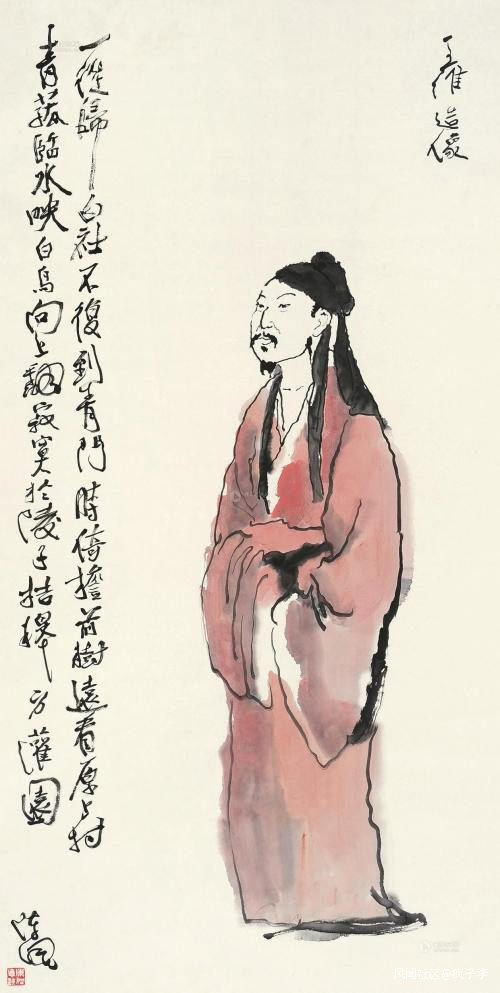 王維造像
一從歸白社不復到青門時倚檐前樹遠看原上村
青菰臨水映白鳥向上翻寂寞於陵子桔槔方灌園
风闻社区